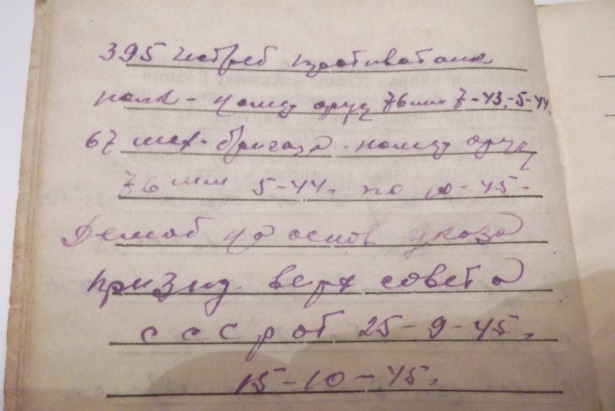 395 истреб противотанк
полк - номер оруд 76 мм 7-43,-5-44,
67 мех. бригада. номер оруд
76 мм 5-44. по 10-45.
Демоб на основ указа
през​ид верх совета
С С С Р от 25-9-45.
15-10-45.